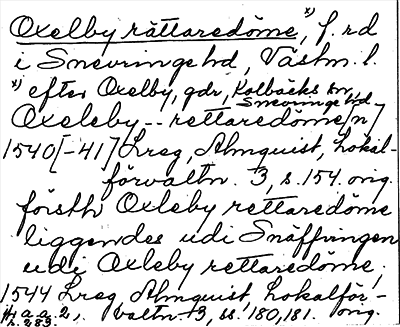 Oxelby rättaredöme, x) f. rd
i Snevringe hd, Västm. l.
x) efter Oxelby, gdr, Kolbäcks sn,
Snevringe hd
Oxeleby -- rettaredöme[n]
1540[-41] Lreg, Almquist, Lokal-
förvaltn. 3, s. 154. orig.
försth Oxleby rettaredöme
liggendes udi Snäffringen
udi Oxleby rettaredöme,
1544 Lreg, Almquist, Lokalför-
H) a. a. 2, valtn. 3, ss. 180, 181. orig.
s. 283.